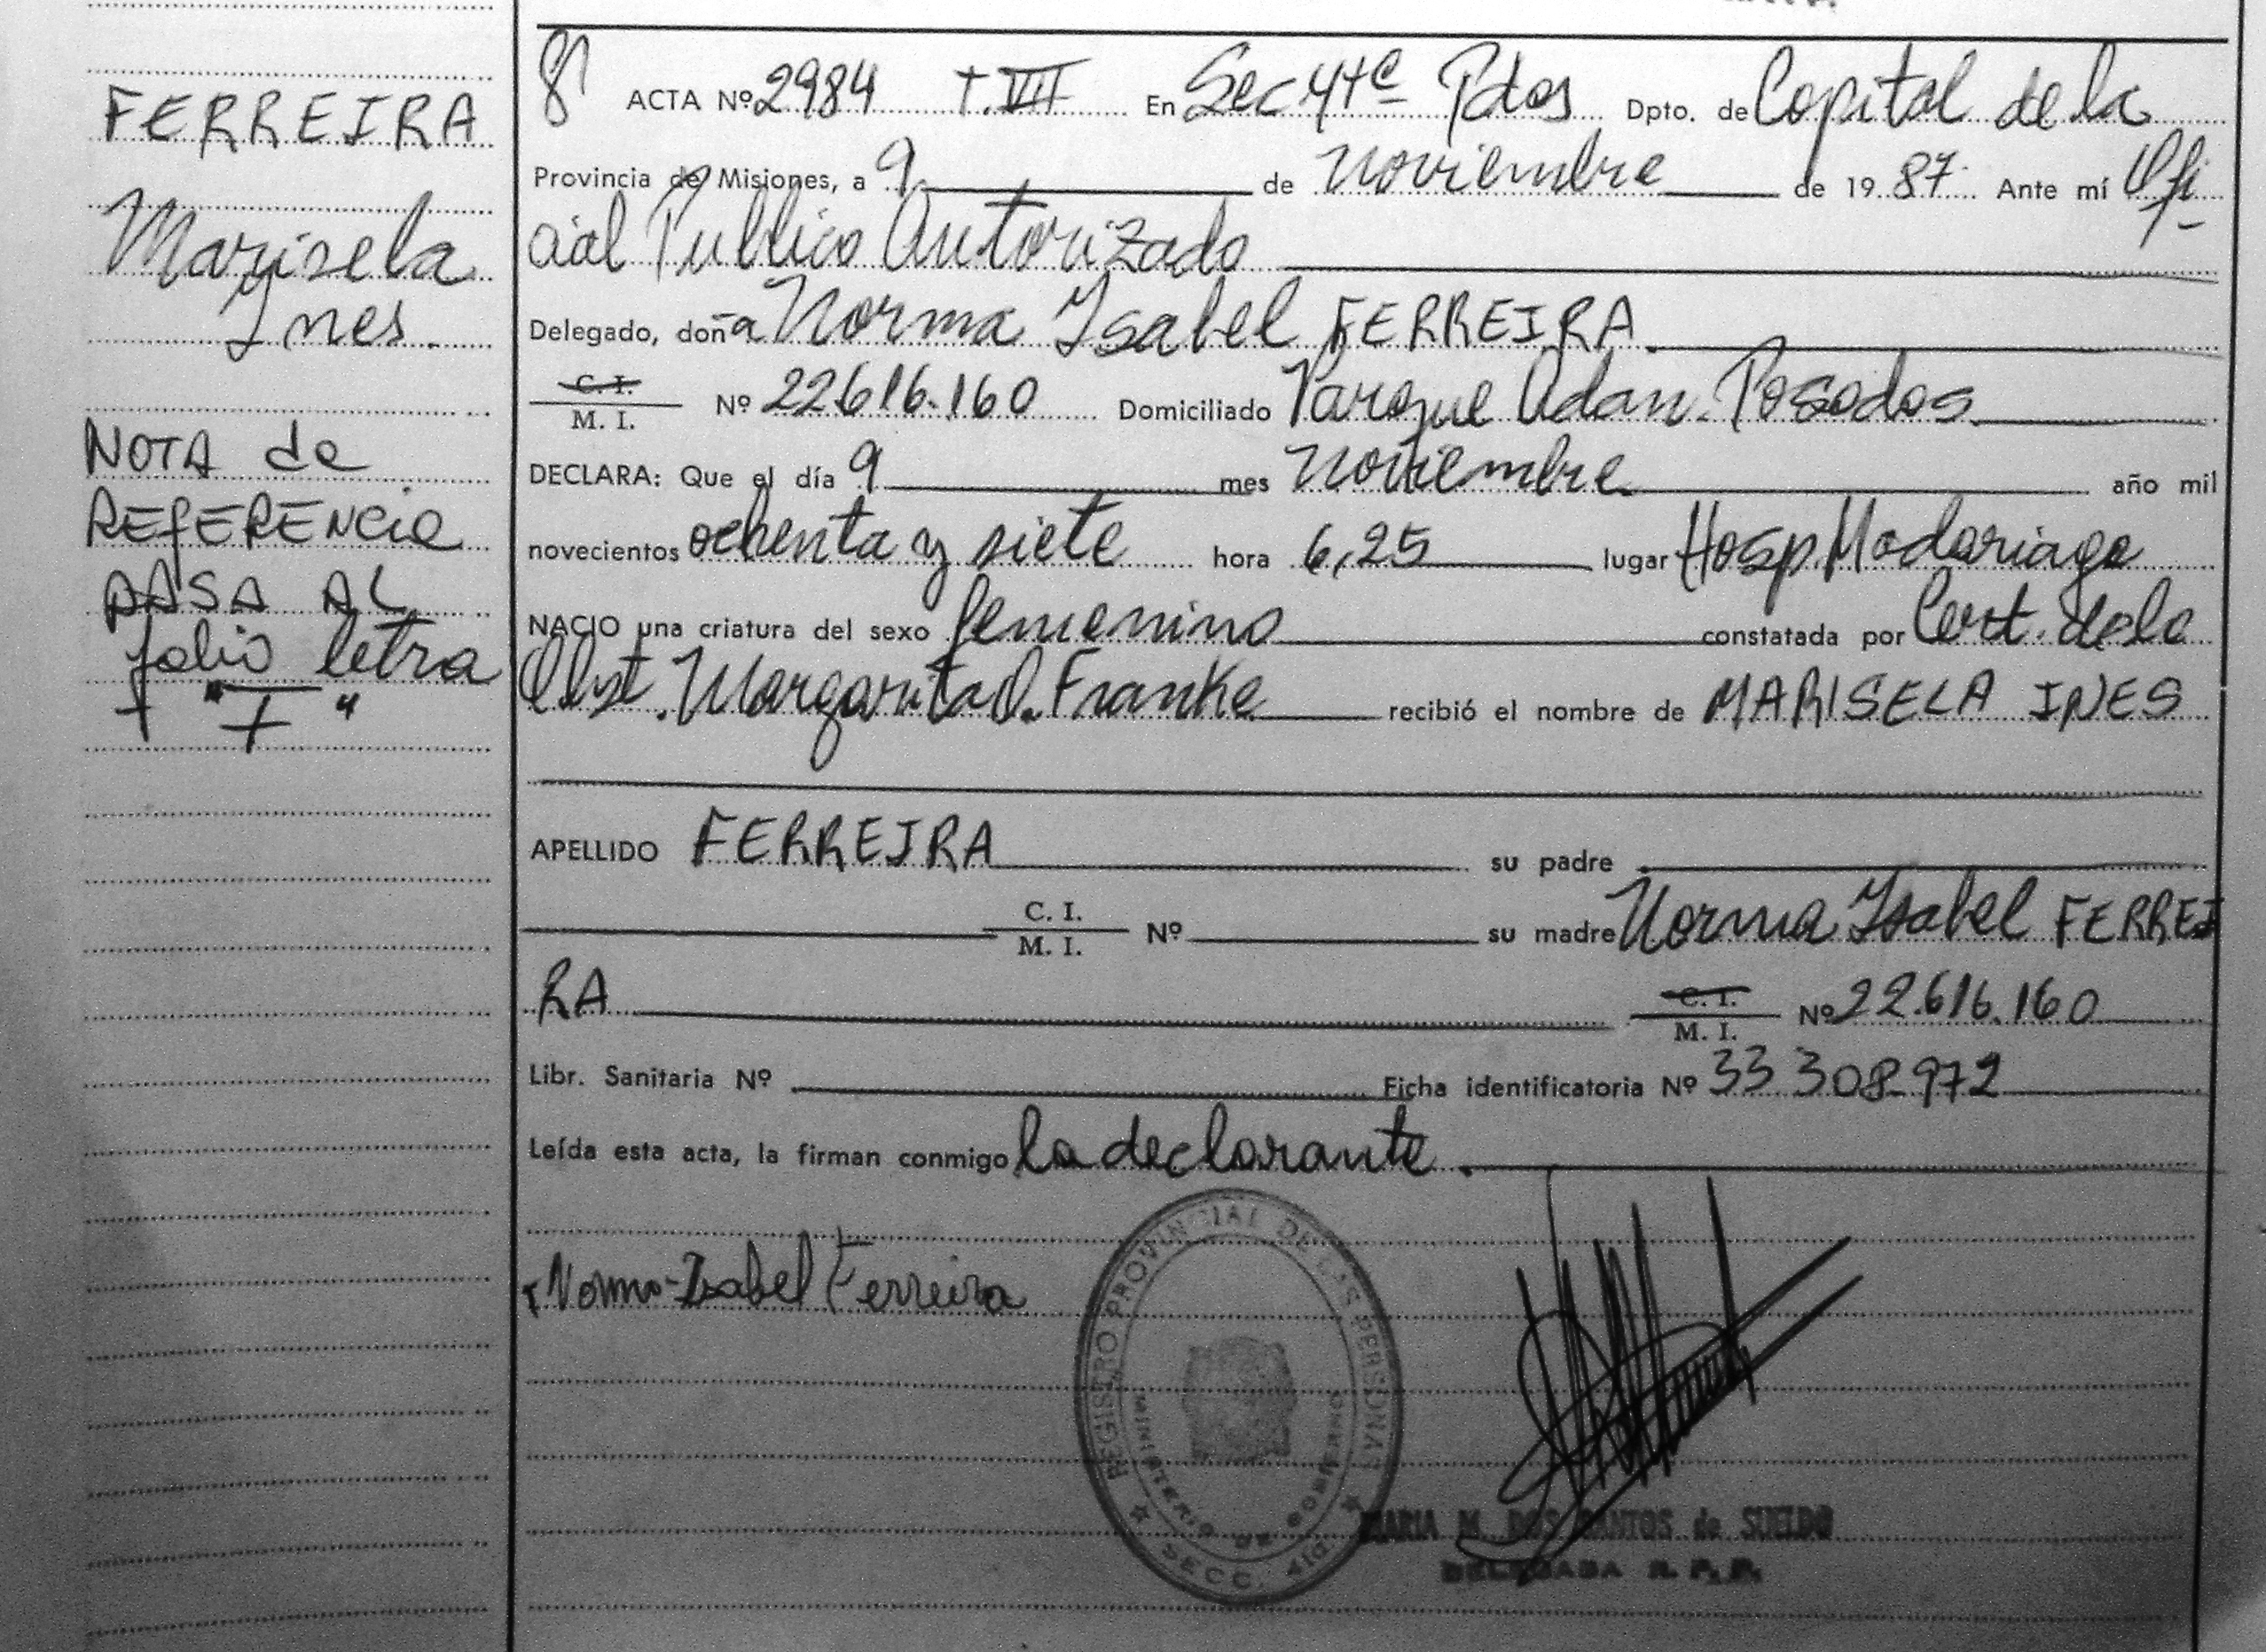 FERREIRA
Marisela
Ines.
NOTA de
REFERENCia
PASA AL
folio letra
"I"
ACTA Nº 2984 T. VII En Sec 4ta Pdas Dpto. de Capital de la
Provincia de Misiones, a 9 de Noviembre de 19 87. Ante mí Ofi
cial Publico Autorizado
Delegado, doña Norma Isabel FERREIRA.
C. I.
M. I. Nº 22.616.160 Domiciliado Parque Adam. Posadas.
DECLARA: Que el día 9 mes Noviembre. año mil
novecientos ochenta y siete hora 6,25 lugar Hosp. Madariaga
NACIO una criatura del sexo femenino constatada por Cert. de la
Obst. Margarita O. Franke recibió el nombre de MARISELA INES
APELLIDO FERREIRA su padre
C. I.
M. I. Nº su madre Norma Isabel FERREI
RA C. I.
M. I. Nº 22.616.160
Libr. Sanitaria Nº Ficha identificatoria Nº 33 308 972
Leída esta acta, la firman conmigo la declarante.
Norma Isabel Ferreira
REGISTRO PROVINCIAL DE LAS PERSONAS
MINISTERIO DE GOBIERNO
SECC. 4ta.
MARIA M. DOS SANTOS de SUELDO
DELEGADA R. P. P.